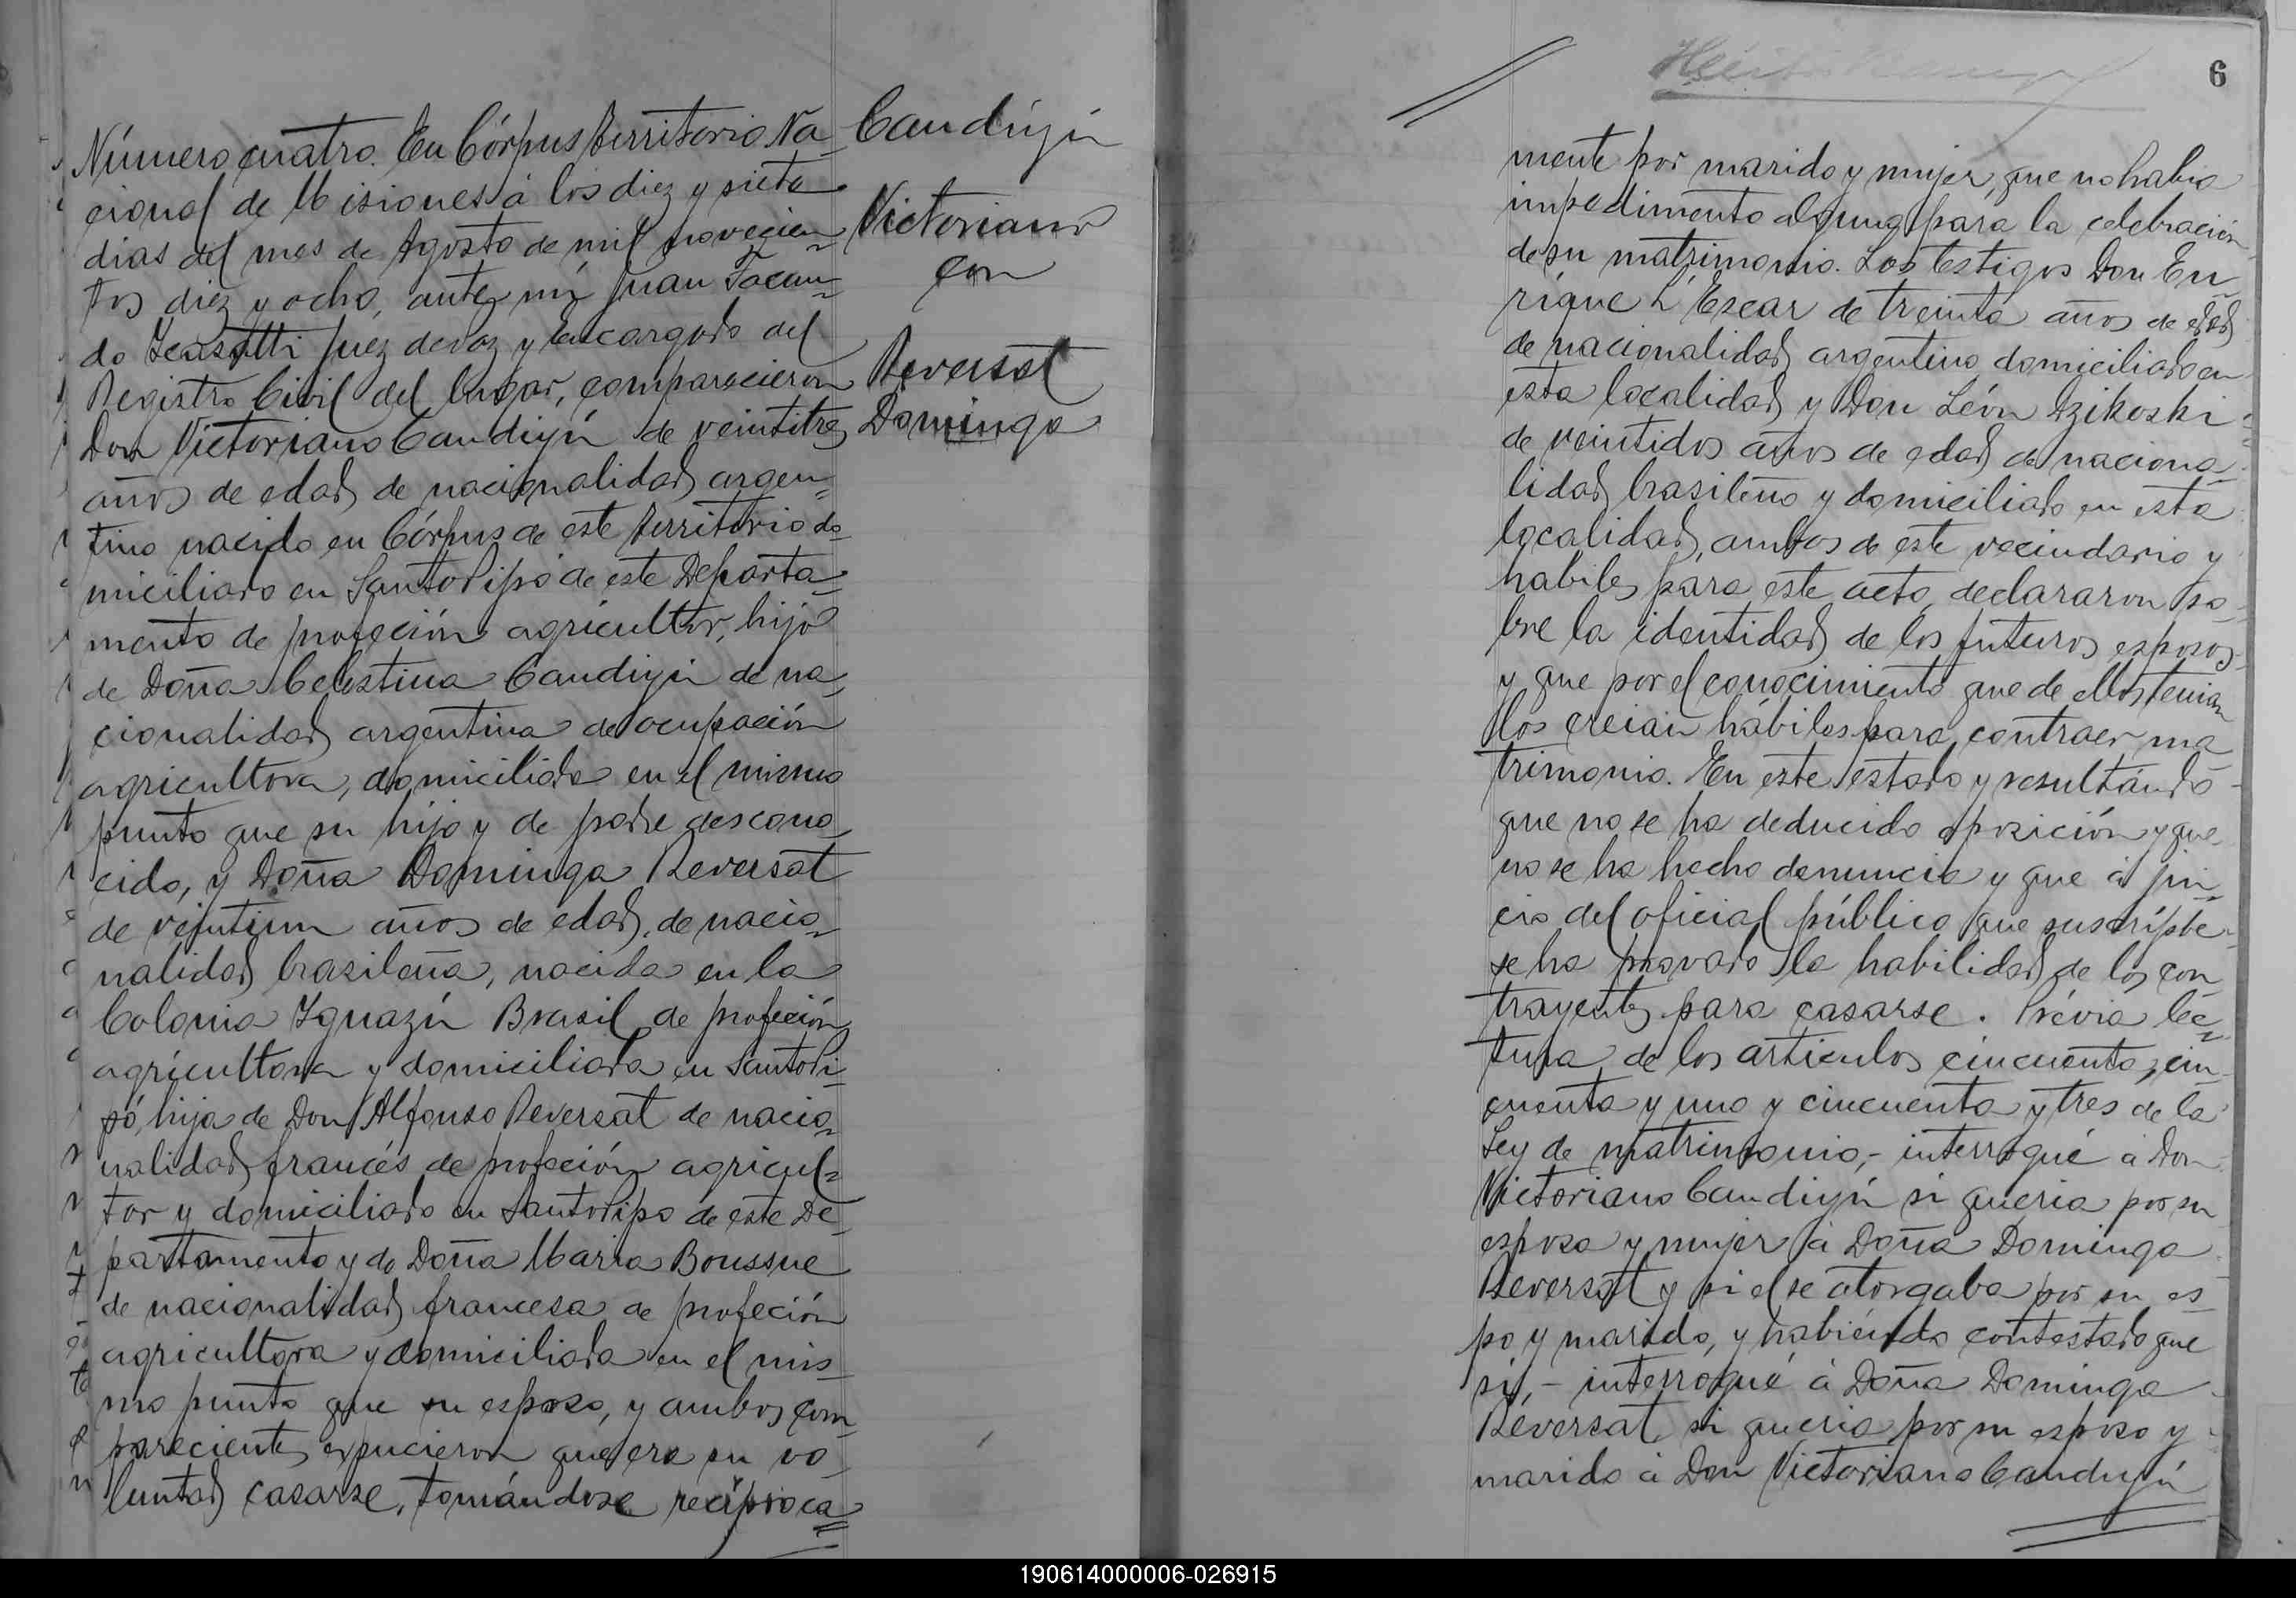 Número cuatro. En Córpus Territorio Na-
cional de Misiones á los diez y siete
dias del mes de Agosto de mil novecien-
tos diez y ocho, ante mí Juan
do Juez de Paz y Encargado del
Registro Civil del lugar, comparecieron
Don Victoriano Candiyú de veintitres
años de edad de nacionalidad argen-
tino nacido en Córpus de este Territorio do-
miciliado en Santo Pipó de este Departa-
mento de profeción agricultor, hijo
de Doña Celestina Candiyú de na-
cionalidad argentina de ocupación
agricultora, domiciliada en el mismo
punto que su hijo y de padre descono-
cido, y Doña Dominga Reversat
de veintiun años de edad, de nacio-
nalidad brasileña, nacida en la
Colonia Yguazú Brasil de profeción
agricultora y domiciliada en Santo Pi-
pó, hija de Don Alfonso Reversat de nacio-
nalidad francés de profeción agricul-
tor y domiciliado en Santo Pipo de este De-
partamento y de Doña Maria Boussue
de nacionalidad francesa de profeción
agricultora y domiciliada en el mis-
mo punto que su esposo, y ambos com-
parecientes expucieron que era su vo-
luntad casarse, tomándose recíproca-
Candiyú
Victoriano
con
Reversat
Dominga
6
mente por marido y mujer, que no habia
impedimento alguno para la celebración
de su matrimonio. Los testigos Don En-
rique L'Escar de treinta años de edad
de nacionalidad argentino domiciliado en
esta localidad y Don León Dzikoski
de veintidos años de edad de naciona-
lidad brasileño y domiciliado en esta
localidad, ambos de este vecindario y
habiles para este acto, declararon so-
bre la identidad de los futuros esposos
y que por el conocimiento que de ellos tenian
los creian hábiles para contraer ma-
trimonio. En este estado y resultando
que no se ha deducido oposición y que
no se ha hecho denuncia y que á jui-
cio del oficial público que suscribe
se ha provado la habilidad de los con-
trayentes para casarse. Prévia lec-
tura de los articulos cincuenta, cin-
cuenta y uno y cincuenta y tres de la
Ley de matrimonio,- interrogué á Don
Victoriano Candiyú si queria por su
esposa y mujer á Doña Dominga
Reversat y si el se otorgaba por su es-
po y marido, y habiendo contestado que
si,- interrogué á Doña Dominga
Reversat si queria por su esposo y
marido á Don Victoriano Candiyú
190614000006-026915